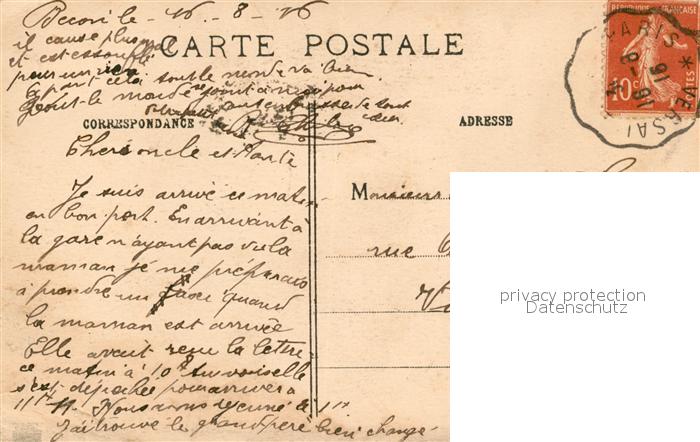 Becon le 16 - 8 - 16
il cause plus mal
et est essoufflé
pour un rien
A part cela tout le monde va bien
Tout le monde se joint à moi pour
vous embrasser de tout
cœur.
CARTE POSTALE
REPUBLIQUE FRANÇAISE
10c
PARIS * VERSAI
16 - 8
16
CORRESPONDANCE
ADRESSE
Chers oncle et tante
Je suis arrivé ce matin
en bon port. En arrivant à
la gare n'ayant pas vu la
maman je me préparais
à prendre un taxi quand
la maman est arrivée
Elle avait reçu la lettre
ce matin à 10h
s'est dépêchée pour arriver à
11h Nous avons déjeuné à 1h
J'ai trouvé le grand père bien changé
Monsieur
rue
privacy protection
Datenschutz